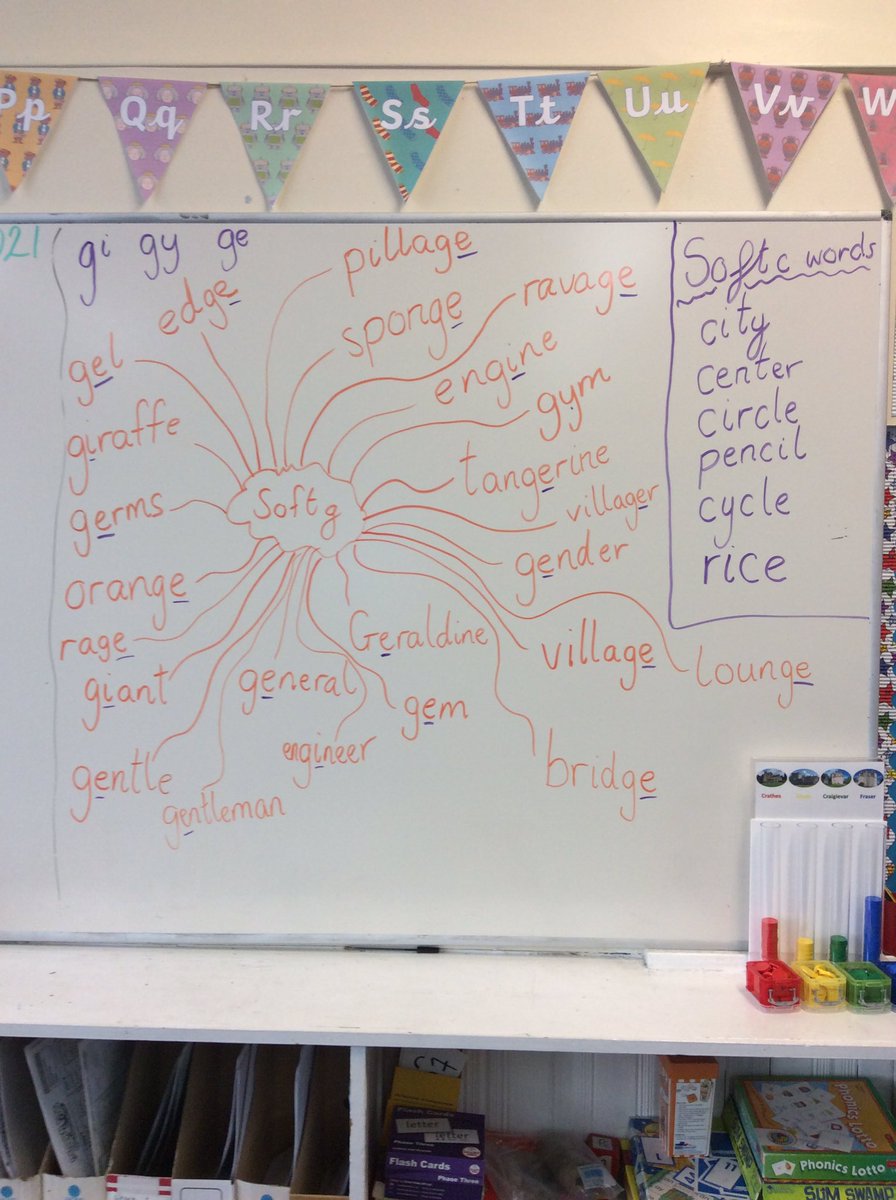 Pp Qq Rr Ss Tt Uu Vv W
021
gi gy ge
pillage
edge
sponge
ravage
gel
engine
giraffe
gym
germs
Soft g
tangerine
villager
orange
gender
rage
Geraldine
village
lounge
giant
general
gem
engineer
gentle
gentleman
bridge
Soft c words
city
center
circle
pencil
cycle
rice
Crathes
Craigievar
Fraser
Flash Cards
letter
letter
Flash Cards
Phase Three
Phonics Lotto
Phonics Lotto
SUM SWAMP